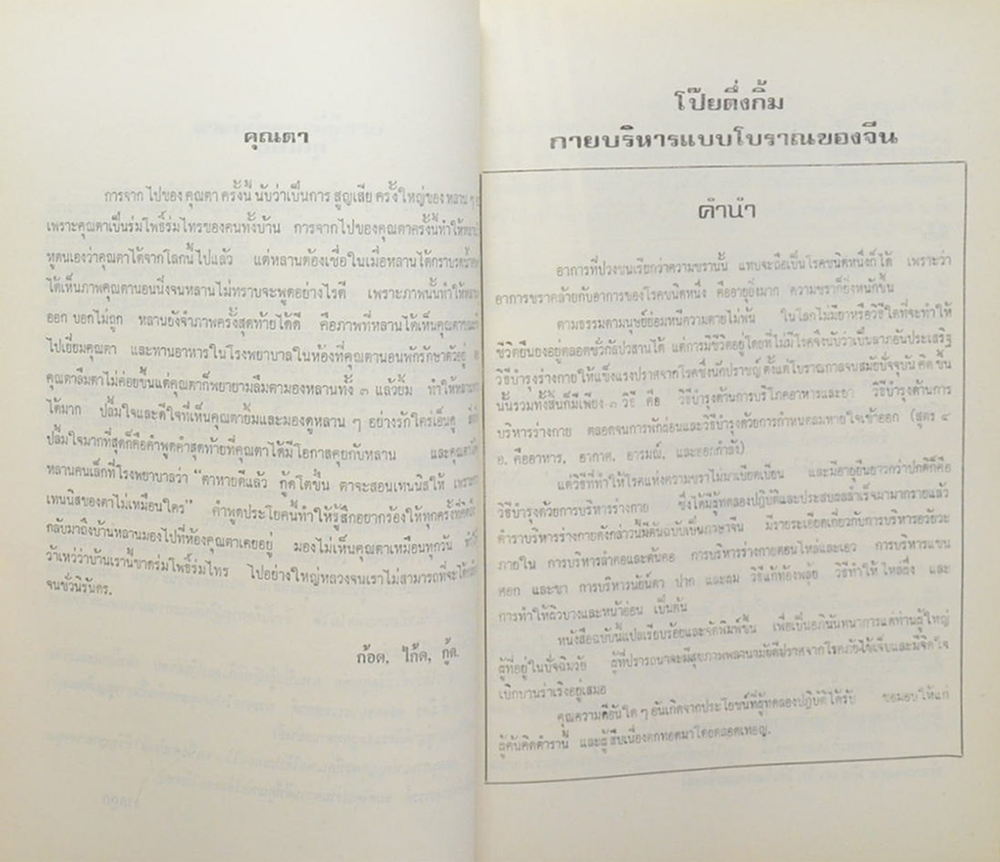 คุณตา
การจากไปของคุณตาครั้งนี้ นับว่าเป็นการ สูญเสีย ครั้งใหญ่ของ หลาน ๆ
เพราะคุณตาเป็นร่มโพธิ์ร่มไทรของคนทั้งบ้าน การจากไปของคุณตาครั้งนี้ทำให้
ตนเองว่าคุณตาได้จากโลกนี้ไปแล้ว แต่หลานต้องเชื่อในเมื่อหลานได้กราบ
ได้เห็นภาพคุณตานอนนิ่งจนหลานไม่ทราบจะพูดอย่างไรดี เพราะภาพนั้นทำให้
ออก บอกไม่ถูก หลานยังจำภาพครั้งสุดท้ายได้ดี คือภาพที่หลานได้เห็นคุณตา
ไปเยี่ยมคุณตา และทานอาหารในโรงพยาบาลในห้องที่คุณตานอนพักรักษาตัวอยู่
คุณตาลืมตาไม่ค่อยขึ้นแต่คุณตาก็พยายามลืมตามองหลานทั้ง ๓ แล้วยิ้ม ทำให้
ได้มาก ปลื้มใจและดีใจที่เห็นคุณตายิ้มและมองดูหลาน ๆ อย่างรักใคร่เอ็นดู
ปลื้มใจมากที่สุดก็คือคำพูดคำสุดท้ายที่คุณตาได้มีโอกาสคุยกับหลาน และคุณตา
หลานคนเล็กที่โรงพยาบาลว่า “ตาหายดีแล้ว กู้ดโตขึ้น ตาจะสอนเทนนิสให้ เพราะ
เทนนิสของตาไม่เหมือนใคร” คำพูดประโยคนี้ทำให้รู้สึกอยากร้องไห้ทุกครั้งที่
กลับมาถึงบ้านหลานมองไปที่ห้องคุณตาเคยอยู่ มองไม่เห็นคุณตาเหมือนทุกวัน
ว้าเหว่ว่าบ้านเรานี้ขาดร่มโพธิ์ร่มไทร ไปอย่างใหญ่หลวงจนเราไม่สามารถที่จะ
จนชั่วนิรันดร.
ก้อด, ไก้ด, กู้ด.
โป๊ยตึ่งกิ้ม
กายบริหารแบบโบราณของจีน
คำนำ
อาการที่ปวงชนเรียกว่าความชรานั้น แทบจะถือเป็นโรคชนิดหนึ่งก็ได้ เพราะว่า
อาการชราคล้ายกับอาการของโรคชนิดหนึ่ง คืออายุยิ่งมาก ความชราก็ยิ่งหนักขึ้น
ตามธรรมดามนุษย์ย่อมหนีความตายไม่พ้น ในโลกไม่มียาหรือวิธีใดที่จะทำให้
ชีวิตยืนยงอยู่ตลอดชั่วกัลปวสานได้ แต่การมีชีวิตอยู่โดยที่ไม่มีโรคจึงนับว่าเป็นลาภอันประเสริฐ
วิธีบำรุงร่างกายให้แข็งแรงปราศจากโรคซึ่งนักปราชญ์ ตั้งแต่โบราณกาลจนสมัยปัจจุบัน คิดขึ้น
นั้นรวมทั้งสิ้นก็มีเพียง ๓ วิธี คือ วิธีบำรุงด้านการบริโภคอาหารและยา วิธีบำรุงด้านการ
บริหารร่างกาย ตลอดจนการพักผ่อนและวิธีบำรุงด้วยการกำหนดลมหายใจเข้าออก (สูตร ๔
อ. คืออาหาร, อากาศ, อารมณ์, และออกกำลัง)
แต่วิธีที่ทำให้โรคแห่งความชราไม่มาเบียดเบียน และมีอายุยืนยาวกว่าปกติก็คือ
วิธีบำรุงด้วยการบริหารร่างกาย ซึ่งได้มีผู้ทดลองปฏิบัติและประสบผลสำเร็จมามากรายแล้ว
ตำราบริหารร่างกายดังกล่าวนี้มีต้นฉบับเป็นภาษาจีน มีรายละเอียดเกี่ยวกับการบริหารอวัยวะ
ภายใน การบริหารลำคอและต้นคอ การบริหารร่างกายตอนไหล่และเอว การบริหารแขน
ศอก และขา การบริหารนัยน์ตา ปาก และลม วิธีแก้ท้องพลุ้ย วิธีทำให้ไหล่ผึ่ง และ
การทำให้ผิวบางและหน้าอ่อน เป็นต้น
หนังสือฉบับนี้แปลเรียบร้อยและจัดพิมพ์ขึ้น เพื่อเป็นอภินันทนาการแด่ท่านผู้ใหญ่
ผู้ที่อยู่ในปัจฉิมวัย ผู้ที่ปรารถนาจะมีสุขภาพพลานามัยดีปราศจากโรคภัยไข้เจ็บและมีจิตใจ
เบิกบานร่าเริงอยู่เสมอ
คุณความดีอันใด ๆ อันเกิดจากประโยชน์ที่ผู้ทดลองปฏิบัติได้รับ ขอมอบให้แก่
ผู้ค้นคิดตำรานี้ และผู้สืบเนื่องตกทอดมาโดยตลอดเทอญ.